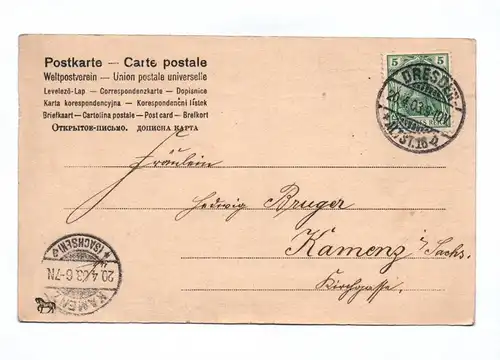 Postkarte — Carte postale
Weltpostverein — Union postale universelle
Levelező-Lap — Correspondenzkarte — Dopisnice
Karta korespondencyjna — Korespondenční lístek
Briefkaart — Cartolina postale — Post card — Brefkort
Открытое-письмо. дописна карта
5 5
DRESDEN-
ALTST. 16
Fräulein
Hedwig Bruger
Kamenz i/Sachs.
Kirchgasse.
KAMENZ
20.4.03.6-7N
(SACHSEN)